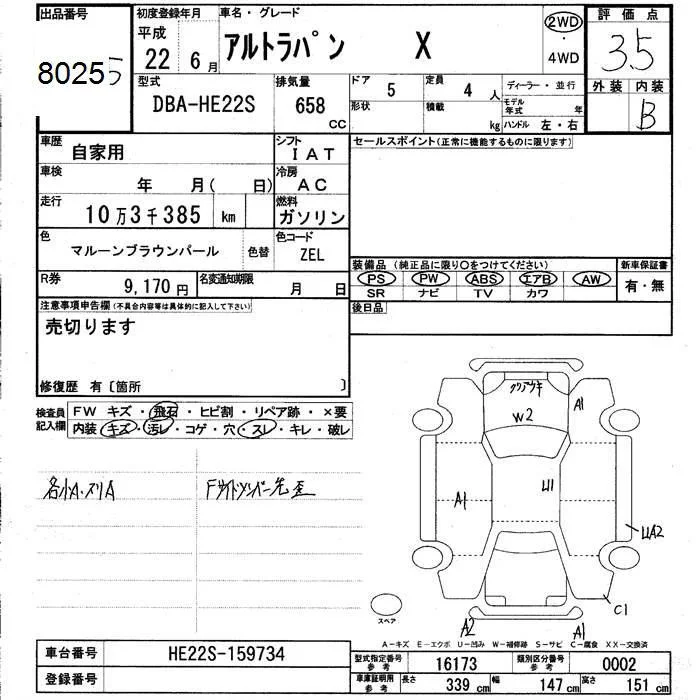 出品番号 初度登録年月 車名・グレード 2WD ・ 4WD 評価点
80255 平成 22 6月 アルトラパン X 3.5
型式 排気量 ドア 5 定員 4人 ディーラー・並行 外装 内装
DBA-HE22S 658 CC 形状 積載 kg モデル年式 年 ハンドル 左・右 B
車歴 自家用 シフト IAT セールスポイント(正常に機能するものに限ります)
車検 年 月( 日) 冷房 AC
走行 10万3千385 km 燃料 ガソリン
色 マルーンブラウンパール 色替 色コード ZEL
装備品(純正品に限り○をつけてください) 新車保証書
PS PW ABS エアB AW 有・無
SR ナビ TV カワ
R券 9,170円 名変通知期限 月 日 後日品
注意事項申告欄(不具合内容等は具体的に記入して下さい)
売切ります
修復歴 有〔箇所 〕
検査員記入欄 FW キズ・飛石・ヒビ割・リペア跡・×要
内装・キズ・汚レ・コゲ・穴・スレ・キレ・破レ
各小A・スリA
クリアツキ
W2
A1
A1
U1
UA2
C1
A2
A1
スペア
A-キズ E-エクボ U-凹み W-補修跡 S-サビ C-腐食 XX-交換済
車台番号 HE22S-159734 型式指定番号参考 16173 類別区分番号参考 0002
登録番号 車庫証明用参考 長さ 339cm 幅 147cm 高さ 151cm